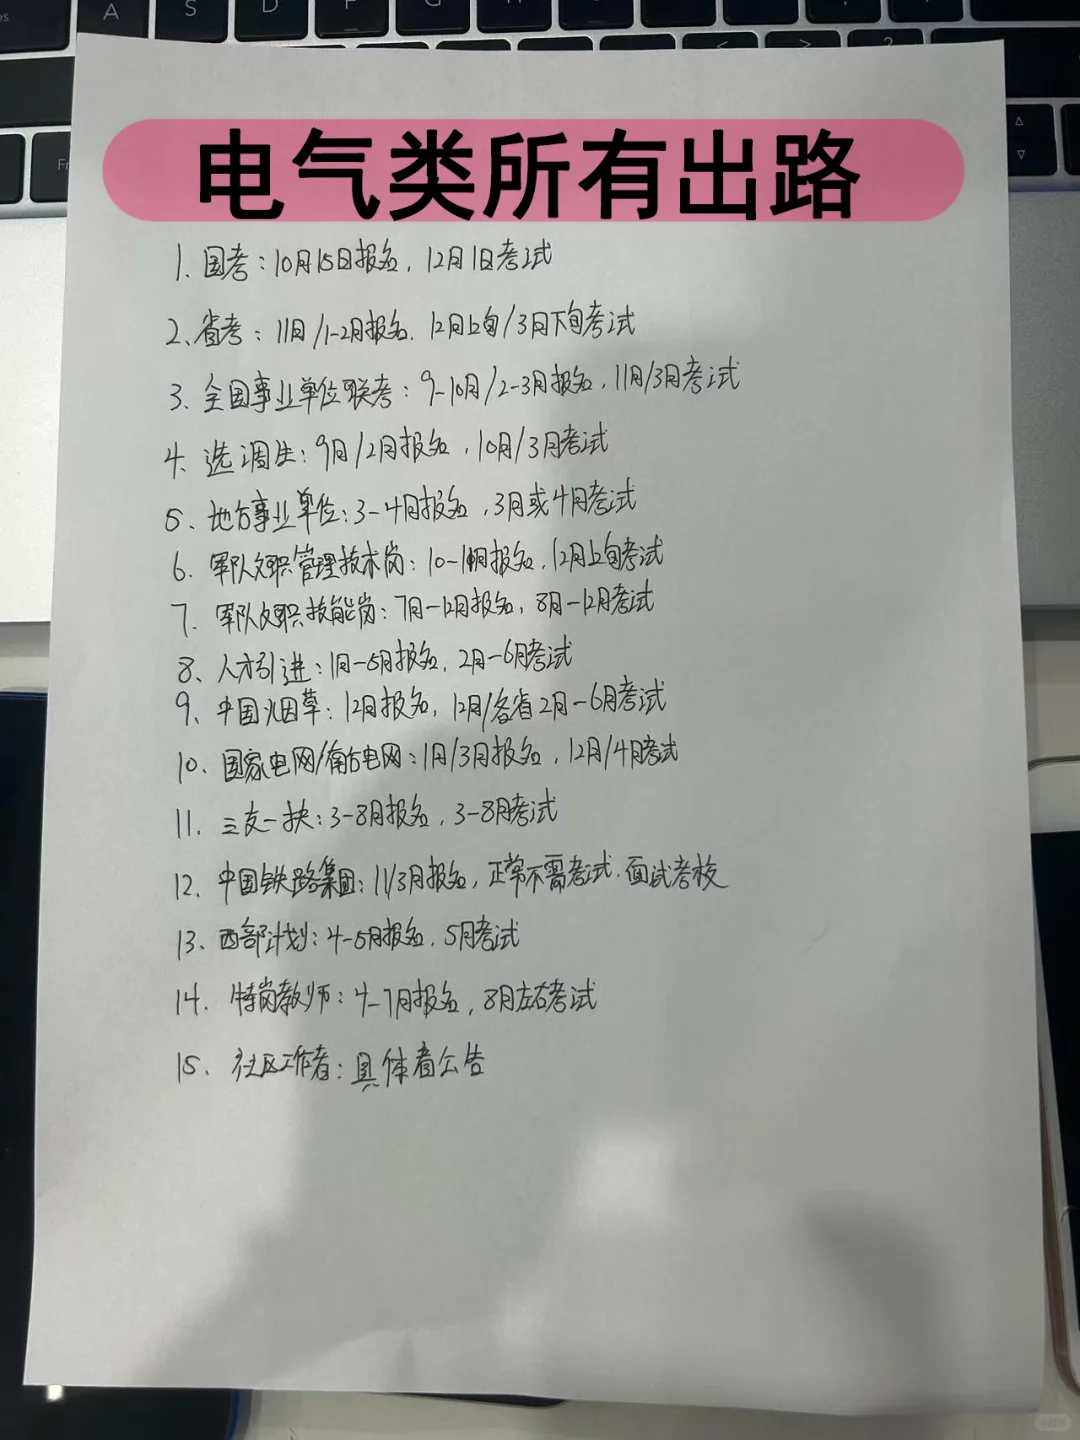 A S D F G H
电气类所有出路
1、国考：10月15日报名，12月1日考试
2、省考：11月/1-2月报名．12月上旬/3月下旬考试
3、全国事业单位联考：9-10月/2-3月报名，11月/3月考试
4、选调生：9月/2月报名，10月/3月考试
5、地方事业单位：3-4月报名，3月或4月考试
6、军队文职管理技术岗：10-11月报名，12月上旬考试
7、军队文职技能岗：7月-12月报名，8月-12月考试
8、人才引进：1月-5月报名，2月-6月考试
9、中国烟草：12月报名，12月/各省2月-6月考试
10、国家电网/南方电网：1月/3月报名，12月/4月考试
11、三支一扶：3-8月报名，3-8月考试
12、中国铁路集团：11/3月报名，正常不需考试．面试考核
13、西部计划：4-5月报名，5月考试
14、特岗教师：4-7月报名，8月左右考试
15、社区工作者：具体看公告